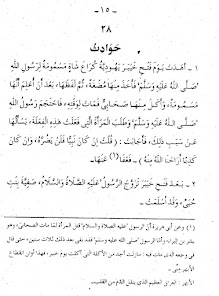 - ١٥ -
٢٨
حَوَادِثُ
١ - أَهْدَتْ يَوْمَ فَتْحِ خَيْبَرَ يَهُودِيَّةٌ كُرَاعَ شَاةٍ مَسْمُومَةٍ لِرَسُولِ اللهِ
صَلَّى اللهُ عَلَيْهِ وَسَلَّمَ فَأَخَذَ مِنْهَا مُضْغَةً، ثُمَّ لَفَظَهَا، بَعْدَ أَنْ أُعْلِمَ أَنَّهَا
مَسْمُومَةٌ، وَأَكَلَ مِنْهَا صَحَابِيٌّ فَمَاتَ لِوَقْتِهِ، فَاحْتَجَمَ رَسُولُ اللهِ
صَلَّى اللهُ عَلَيْهِ وَسَلَّمَ وَطَلَبَ الْمَرْأَةَ الَّتِي فَعَلَتْ هَذِهِ الْفَعْلَةَ، يَسْأَلُهَا
عَنْ سَبَبِ ذَلِكَ، فَأَجَابَتْ: (قُلْتُ إِنْ كَانَ نَبِيًّا فَلَنْ يَضُرَّهُ، وَإِنْ كَانَ
كَاذِبًا أَرَاحَنَا اللهُ مِنْهُ) . فَعَفَا (١) عَنْهَا.
٢ - بَعْدَ فَتْحِ خَيْبَرَ تَزَوَّجَ الرَّسُولُ عَلَيْهِ الصَّلَاةُ وَالسَّلَامُ، صَفِيَّةَ بِنْتَ
حُيَيٍّ، وَقَدْ أَسْلَمَتْ.
(١) وعن أبي هريرة أن الرسول عليه الصلاة والسلام قتل المرأة لما مات الصحابي، وهو
بشر بن البراء، وأما الرسول صلى الله عليه وسلم فقد بقي بعد ذلك ثلاث سنين، حتى قال
في وجعه الذي مات فيه: مازلت أجد من الأكلة التي أكلت يوم خيبر، فهذا أوان انقطاع
الأبهر مني.
الأبهر: العرق العظيم الذي ينقل الدم من القلب.